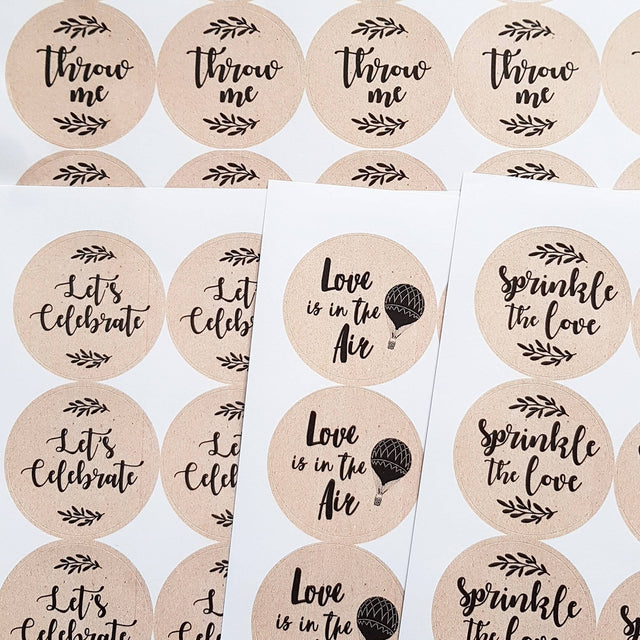 Throw
me
Throw
me
Throw
me
Throw
me
Let's
Celebrate
Let's
Celebrate
Let's
Celebrate
Love
is in the
Air
Love
is in the
Air
Love
is in the
Sprinkle
the love
Sprinkle
the love
Sprinkle
the love